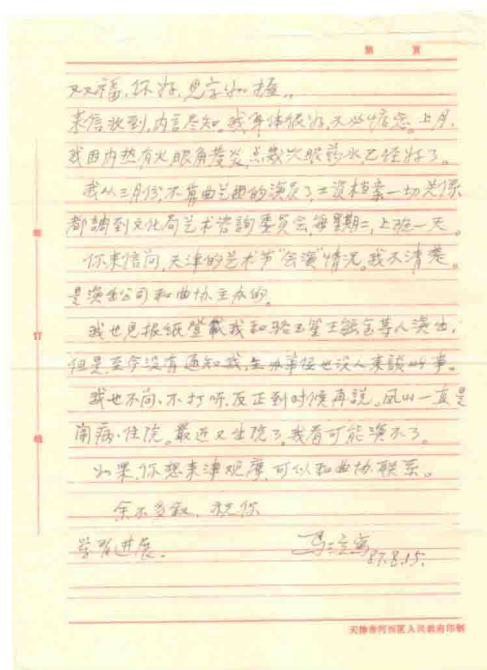 第 页
双福,你好,见字如握,,
来信收到,内言尽知。我身体很好,不必惦念。上月,
我因内热有火眼角发炎,点几次眼药水已经好了。
我从三月份,不算曲艺团的演员了,工资档案一切关系
都調到文化局艺术咨詢委员会,每星期二,上班一天。
你来信问,天津的艺术节"会演"情况。我不清楚。
是演出公司和曲协主办的。
我也见报纸登載我和骆玉笙王毓宝等人演出,
但是,至今没有通知我,主办单位也没人来談此事。
我也不问、不打听,反正到时候再説。凤山一直是
闹病、住院。最近又出院了。我看可能演不了。
如果,你想来津观摩,可以和曲协联系。
余不多叙、祝你
学习进展.
马三立寫
87.8.15.
装
订
线
天津市河西区人民政府印制